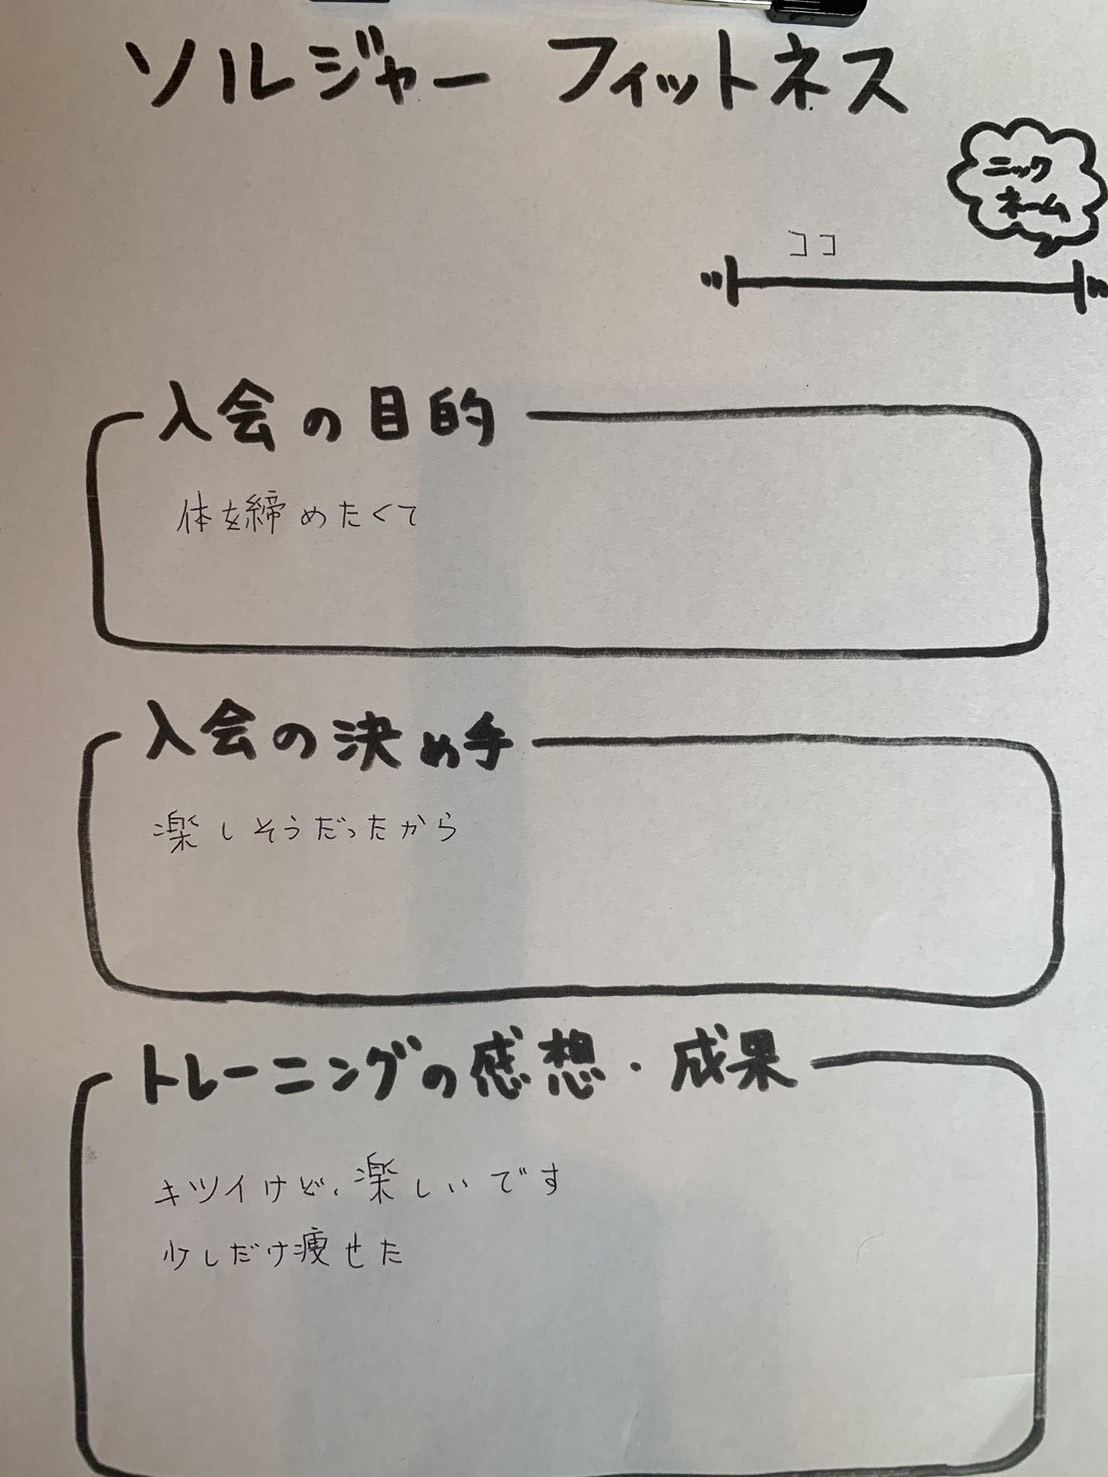 ソルジャー フィットネス
ニック
ネーム
ココ
入会の目的
体を締めたくて
入会の決め手
楽しそうだったから
トレーニングの感想・成果
キツイけど、楽しいです
少しだけ痩せた